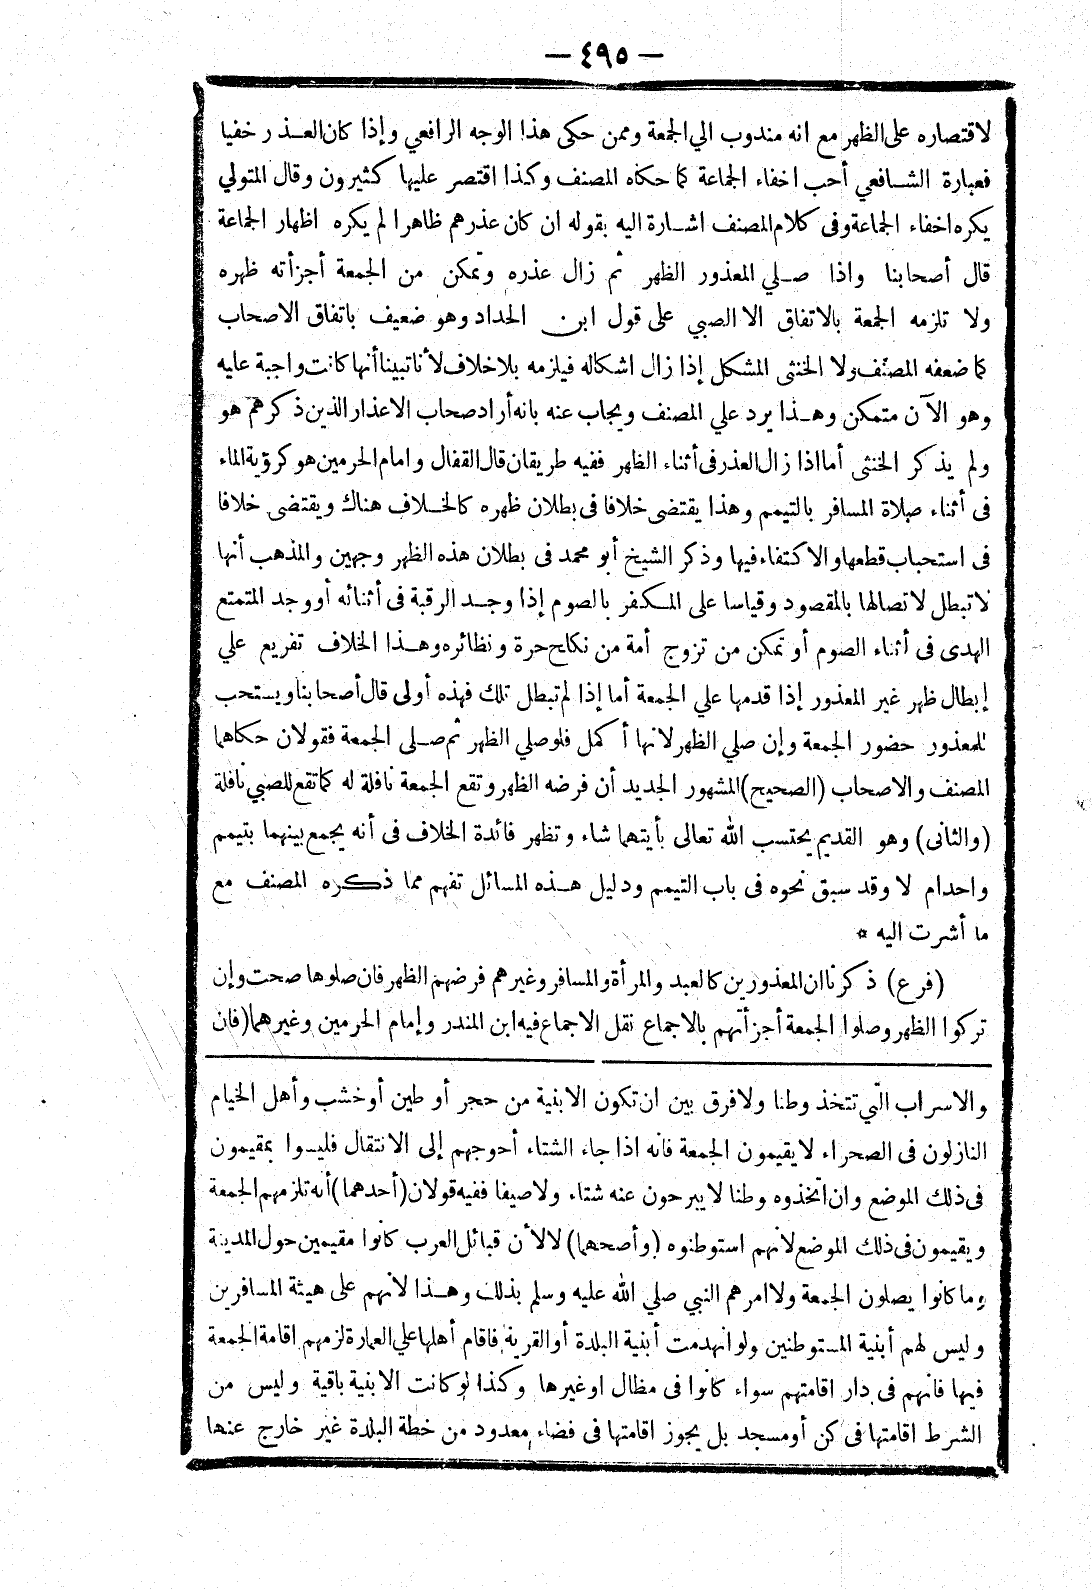 — ٤٩٥ —
لاقتصاره على الظهر مع انه مندوب الي الجمعة وممن حكى هذا الوجه الرافعي وإذا كان العــذر خفيا
فعبارة الشــافعي أحب اخفاء الجماعة كما حكاه المصنف وكذا اقتصر عليها كثيرون وقال المتولي
يكره اخفاء الجماعة وفى كلام المصنف اشــارة اليه بقوله ان كان عذرهم ظاهرا لم يكره اظهار الجماعة
قال أصحابنا واذا صــلي المعذور الظهر ثم زال عذره وتمكن من الجمعة أجزأته ظهره
ولا تلزمه الجمعة بالاتفاق الا الصبي على قول ابن الحداد وهو ضعيف باتفاق الاصحاب
كما ضعفه المصنف ولا الخنثى المشكل إذا زال اشكاله فيلزمه بلا خلاف لأنا تبينا أنها كانت واجبة عليه
وهو الآن متمكن وهــذا يرد علي المصنف ويجاب عنه بانه أراد صحاب الاعذار الذين ذكرهم هو
ولم يذكر الخنثى أما اذا زال العذر فى أثناء الظهر ففيه طريقان قال القفال وامام الحرمين هو كرؤية الماء
فى أثناء صلاة المسافر بالتيمم وهذا يقتضى خلافا فى بطلان ظهره كالخــلاف هناك ويقتضى خلافا
فى استحباب قطعها والاكتفاء فيها وذكر الشيخ أبو محمد فى بطلان هذه الظهر وجهين والمذهب أنها
لا تبطل لاتصالها بالمقصود وقياسا على المــكفر بالصوم إذا وجــد الرقبة فى أثنائه أو وجد المتمتع
الهدى فى أثناء الصوم أو تمكن من تزوج أمة من نكاح حرة ونظائره وهــذا الخلاف تفريع علي
إبطال ظهر غير المعذور إذا قدمها علي الجمعة أما إذا لم تبطل تلك فهذه أولى قال أصحابنا ويستحب
للمعذور حضور الجمعة وإن صلي الظهر لانها أكمل فلو صلي الظهر ثم صــلى الجمعة فقولان حكاهما
المصنف والاصحاب (الصحيح) المشهور الجديد أن فرضه الظهر وتقع الجمعة نافلة له كما تقع للصبي نافلة
(والثانى) وهو القديم يحتسب الله تعالى بأيتهما شاء وتظهر فائدة الخلاف فى أنه يجمع بينهما بتيمم
واحد ام لا وقد سبق نحوه فى باب التيمم ودليل هــذه المسائل تفهم مما ذكــره المصنف مع
ما أشرت اليه *
(فرع) ذكرنا ان المعذورين كالعبد والمرأة والمسافر وغيرهم فرضهم الظهر فان صلوها صحت وإن
تركوا الظهر وصلوا الجمعة أجزأتهم بالاجماع نقل الاجماع فيه ابن المنذر وإمام الحرمين وغيرهما (فان
والاسراب التي تتخذ وطنا ولا فرق بين ان تكون الابنية من حجر أو طين أو خشب وأهل الخيام
النازلون فى الصحراء لا يقيمون الجمعة فانه اذا جاء الشتاء أحوجهم إلى الانتقال فليسوا بمقيمون
فى ذلك الموضع وان اتخذوه وطنا لا يبرحون عنه شتاء ولا صيفا ففيه قولان (أحدهما) أنه تلزمهم الجمعة
ويقيمون فى ذلك الموضع لانهم استوطنوه (وأصحهما) لا لأن قبائل العرب كانوا مقيمين حول المدينة
وما كانوا يصلون الجمعة ولا امرهم النبي صلي الله عليه وسلم بذلك وهــذا لأنهم على هيئة المسافرين
وليس لهم أبنية المستوطنين ولو انهدمت أبنية البلدة أو القرية فاقام أهلها علي العمارة لزمهم اقامة الجمعة
فيها فانهم فى دار اقامتهم سواء كانوا فى مظال او غيرها وكذا لو كانت الابنية باقية وليس من
الشرط اقامتها فى كن أو مسجد بل يجوز اقامتها فى فضاء معدود من خطة البلدة غير خارج عنها